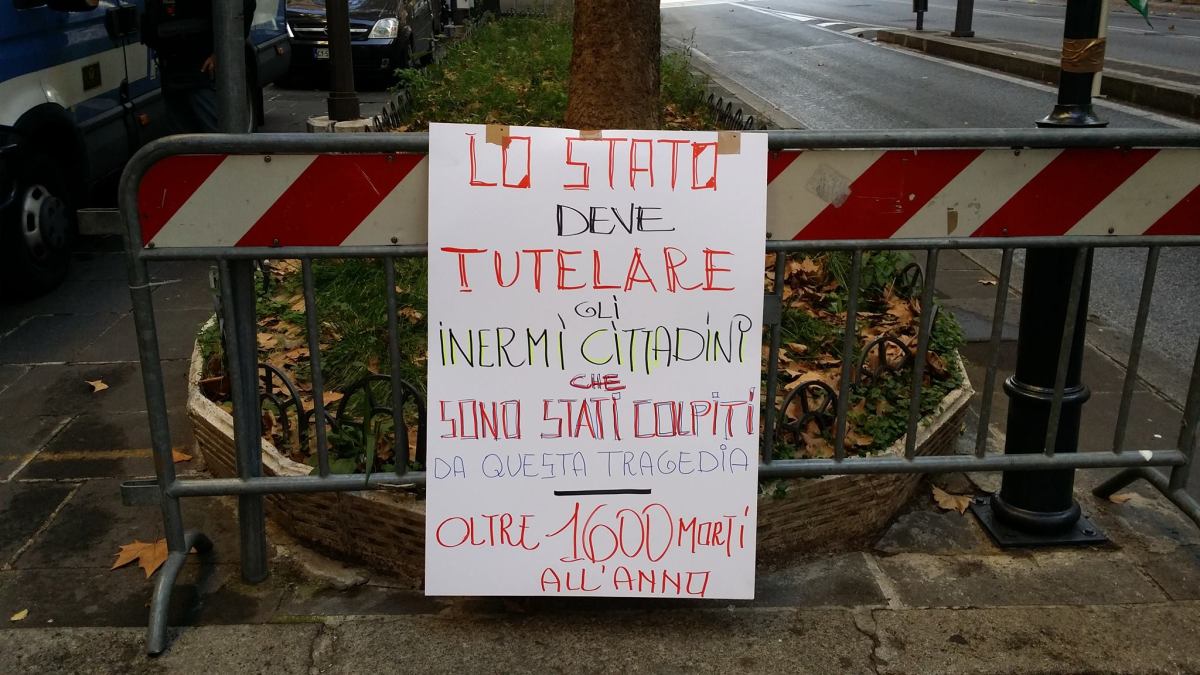 LO STATO
DEVE
TUTELARE
GLI
INERMI CITTADINI
CHE
SONO STATI COLPITI
DA QUESTA TRAGEDIA
OLTRE 1600 MORTI
ALL'ANNO